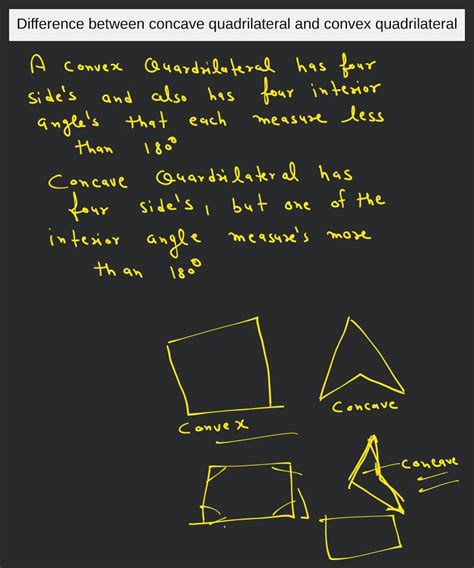 Difference between concave quadrilateral and convex quadrilateral
A convex Quardrilateral has four
side's and also has four interior
angle's that each measure less
than 180°
Concave Quardrilateral has
four side's, but one of the
interior angle measure's more
than 180°
Convex
Concave
Concave